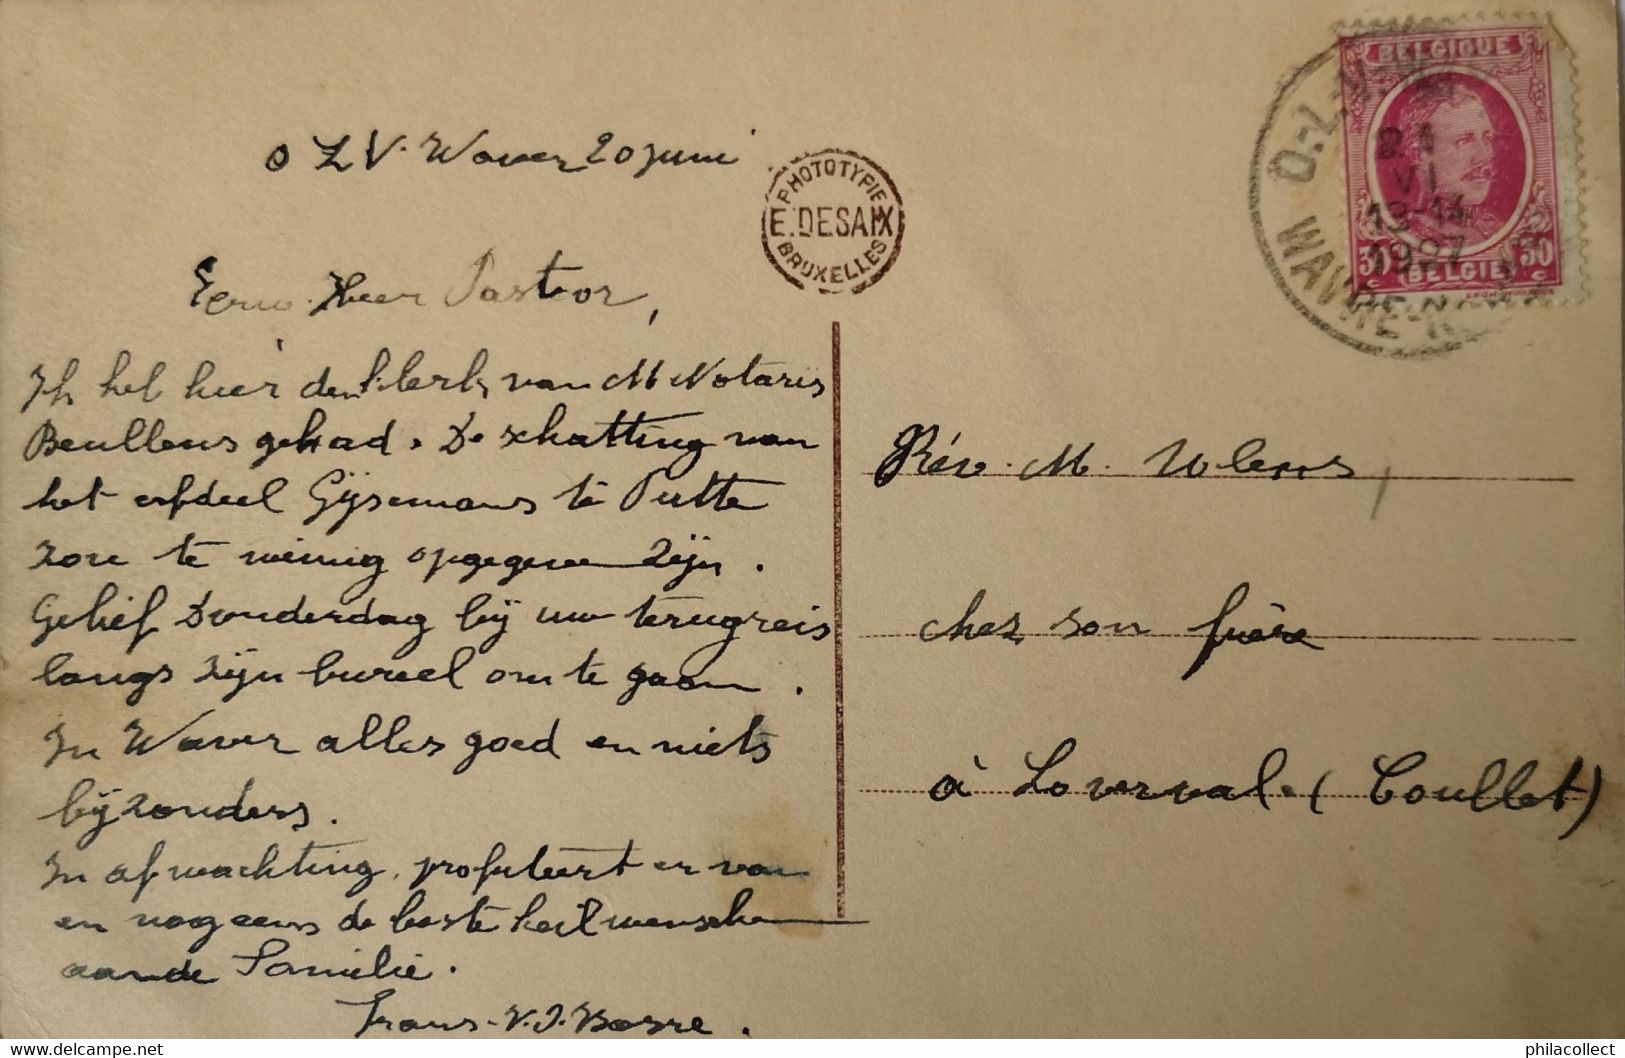 O L V. Waver 20 juni
Eerw. Heer Pastoor,
Ik heb hier den klerk van M Notaris
Beullens gehad. De schatting van
het erfdeel Gijsemans te Putte
zou te weinig opgegeven zijn.
Gelief Donderdag bij uw terugreis
langs zijn bureel om te gaan.
In Waver alles goed en niets
bijzonders.
In afwachting, profiteert er van
en nog eens de beste heilwenschen
aan de Familie.
Frans.
PHOTOTYPIE
E. DESAIX
BRUXELLES
BELGIQUE
30 30
c c
BELGIË
O.-L.-V.-
WAVRE-N
21
VI
13-14
1927
Rév. M.
chez son frère
à Loverval. (Couillet)
philacollect
delcampe.net